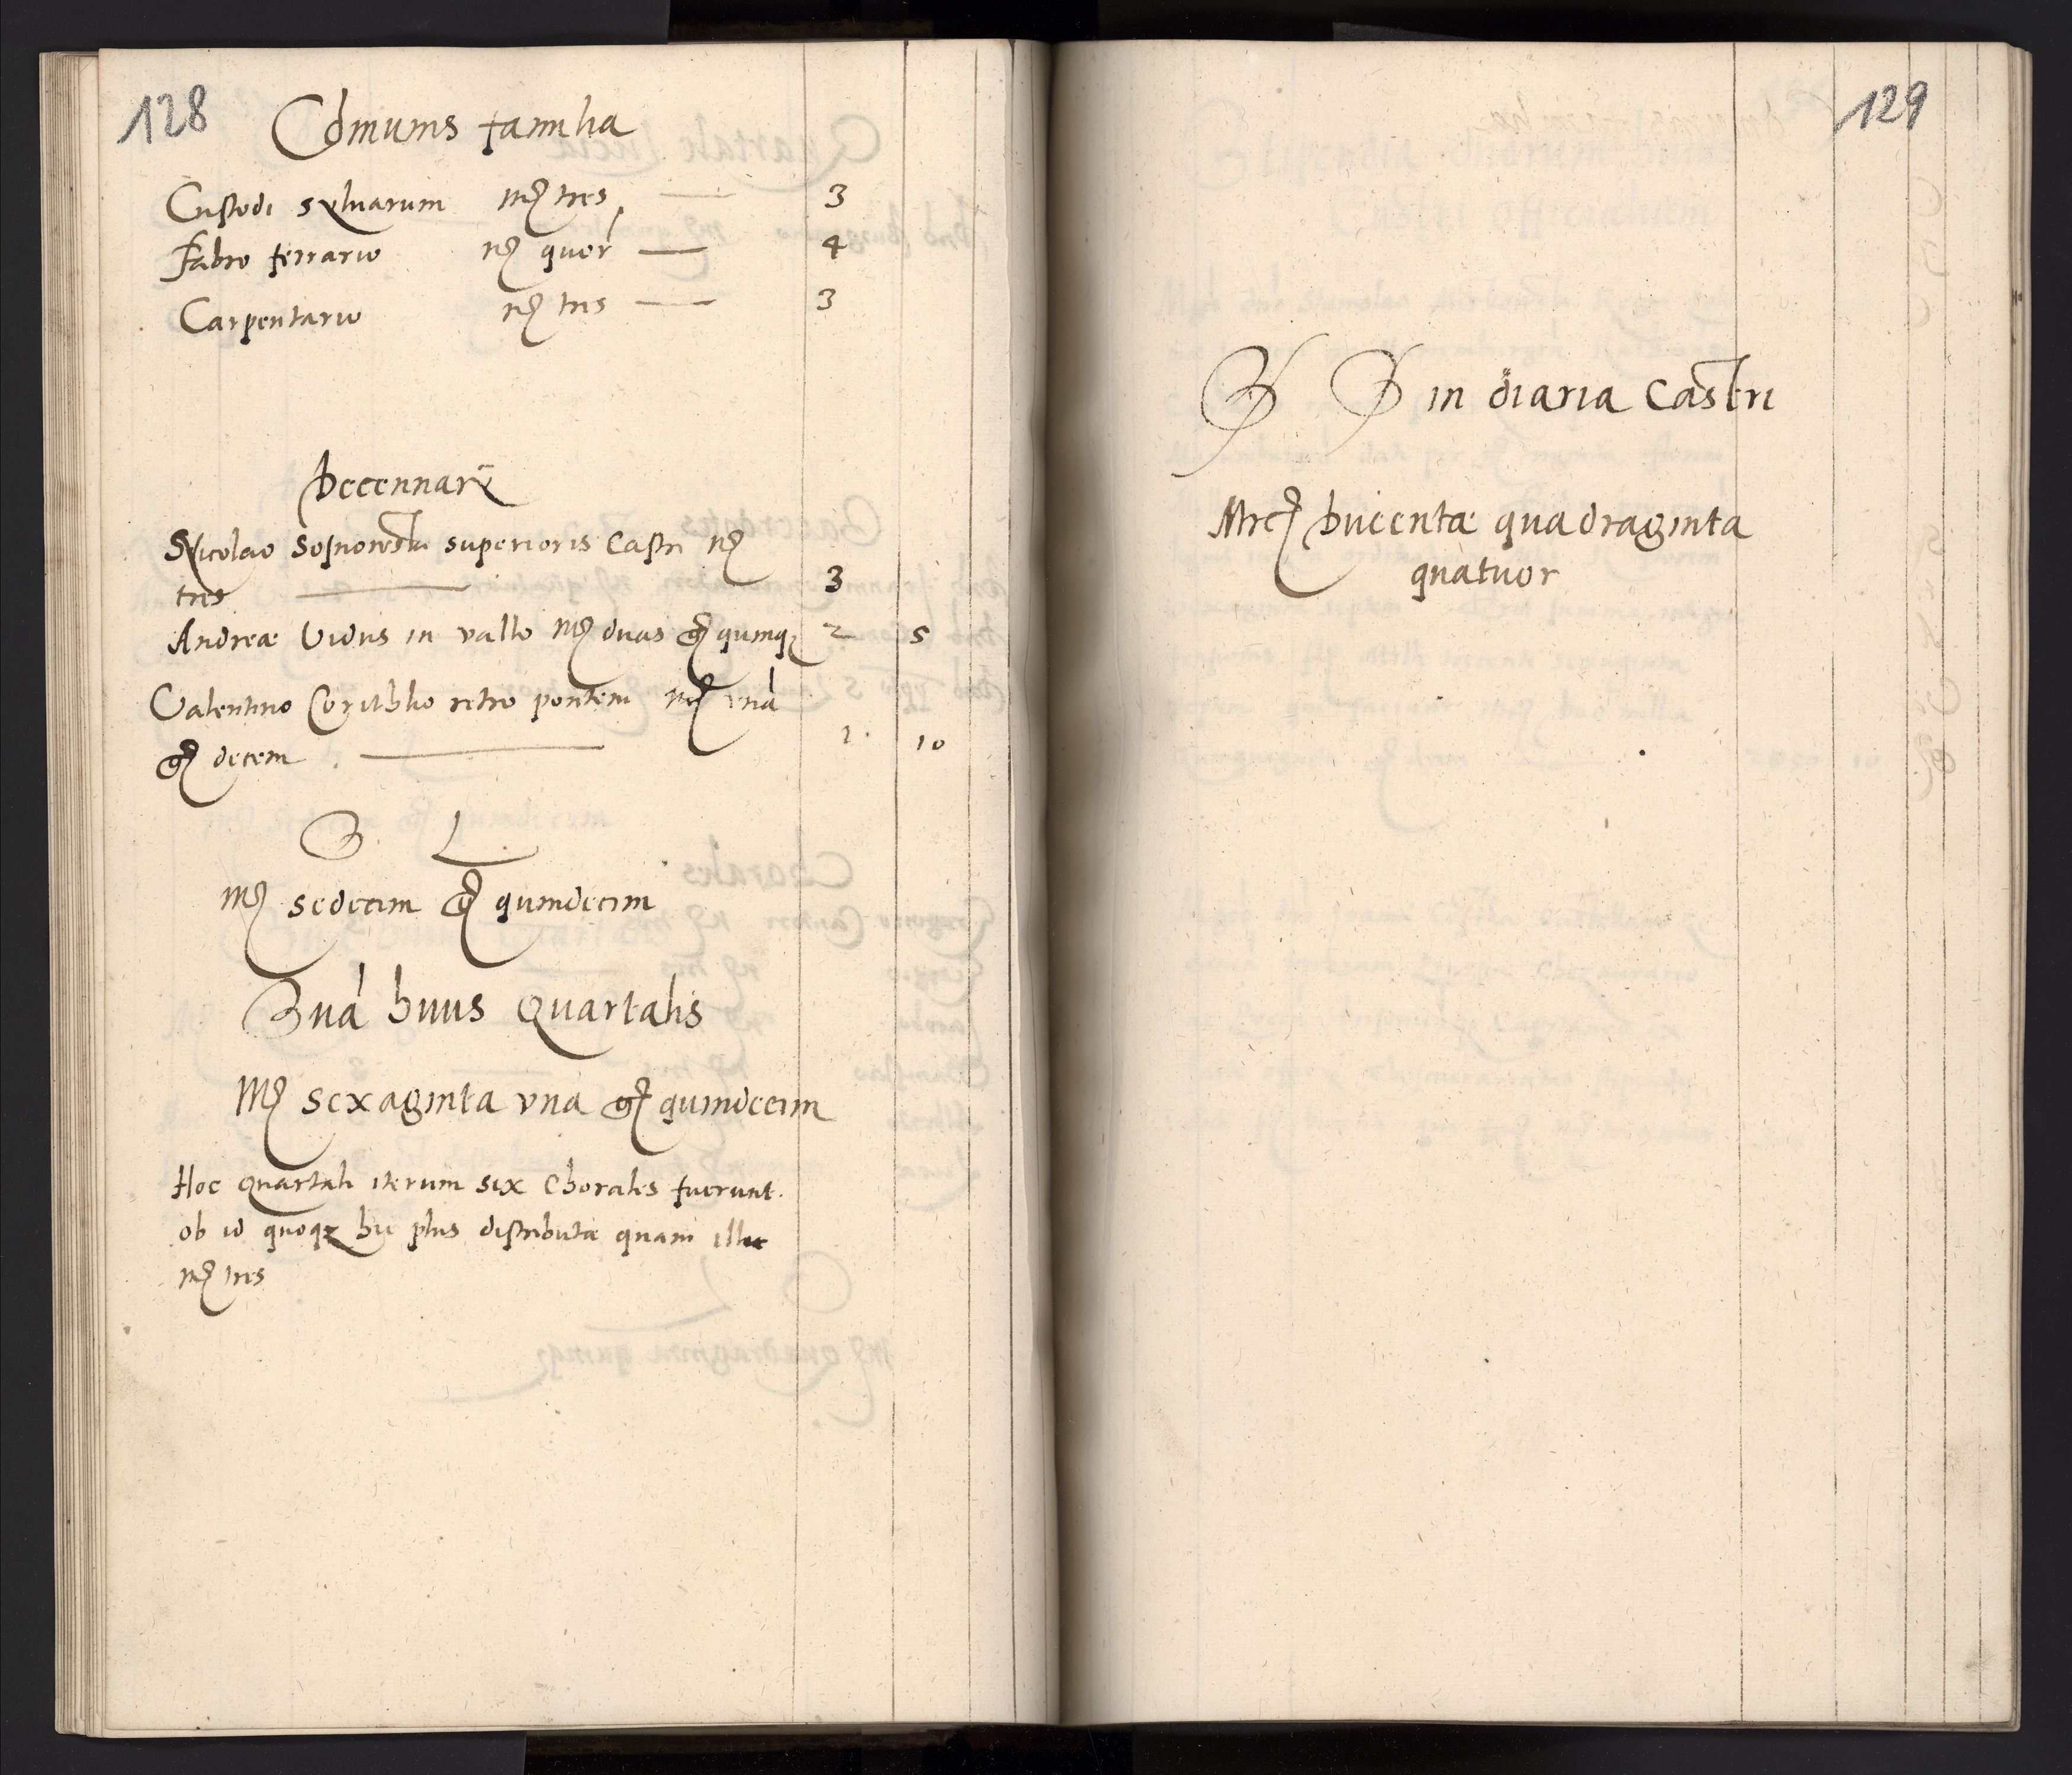 128
Cõmunis familia
Custodi sylvarum mrc tres 3
Fabro ferrario mrc quor 4
Carpentario mrc tres 3
Decennarÿ
Nicolao superioris Castri mrc
tres 3
Andreæ Vidus in vallo mrc duas gr quinqz 2 5
Valentino retro pontem mrc una
gr decem 1 10
S. L.
Mrc sedecim gr quindecim
Suã huius Quartalis
Mrc sexaginta una gr quindecim
Hoc Quartali iterum six Chorales fuerunt.
ob id quoqz hic plus distributæ quam illic
mrc tres
129
S S in diaria Castri
Mrc ducentæ quadraginta
quatuor